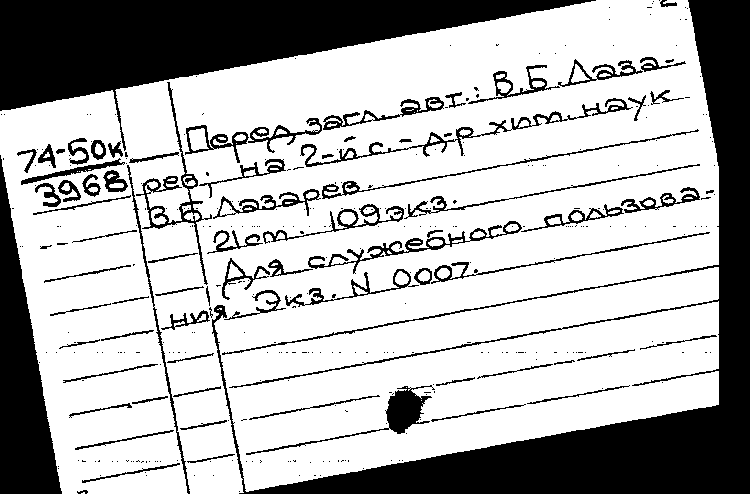 2
74-50к
3968
Перед загл. авт.: В.Б. Лаза-
рев; на 2-й с. - д-р хим. наук
В.Б. Лазарев.
21 см. 109 экз.
Для служебного пользова-
ния. Экз. N 0007.